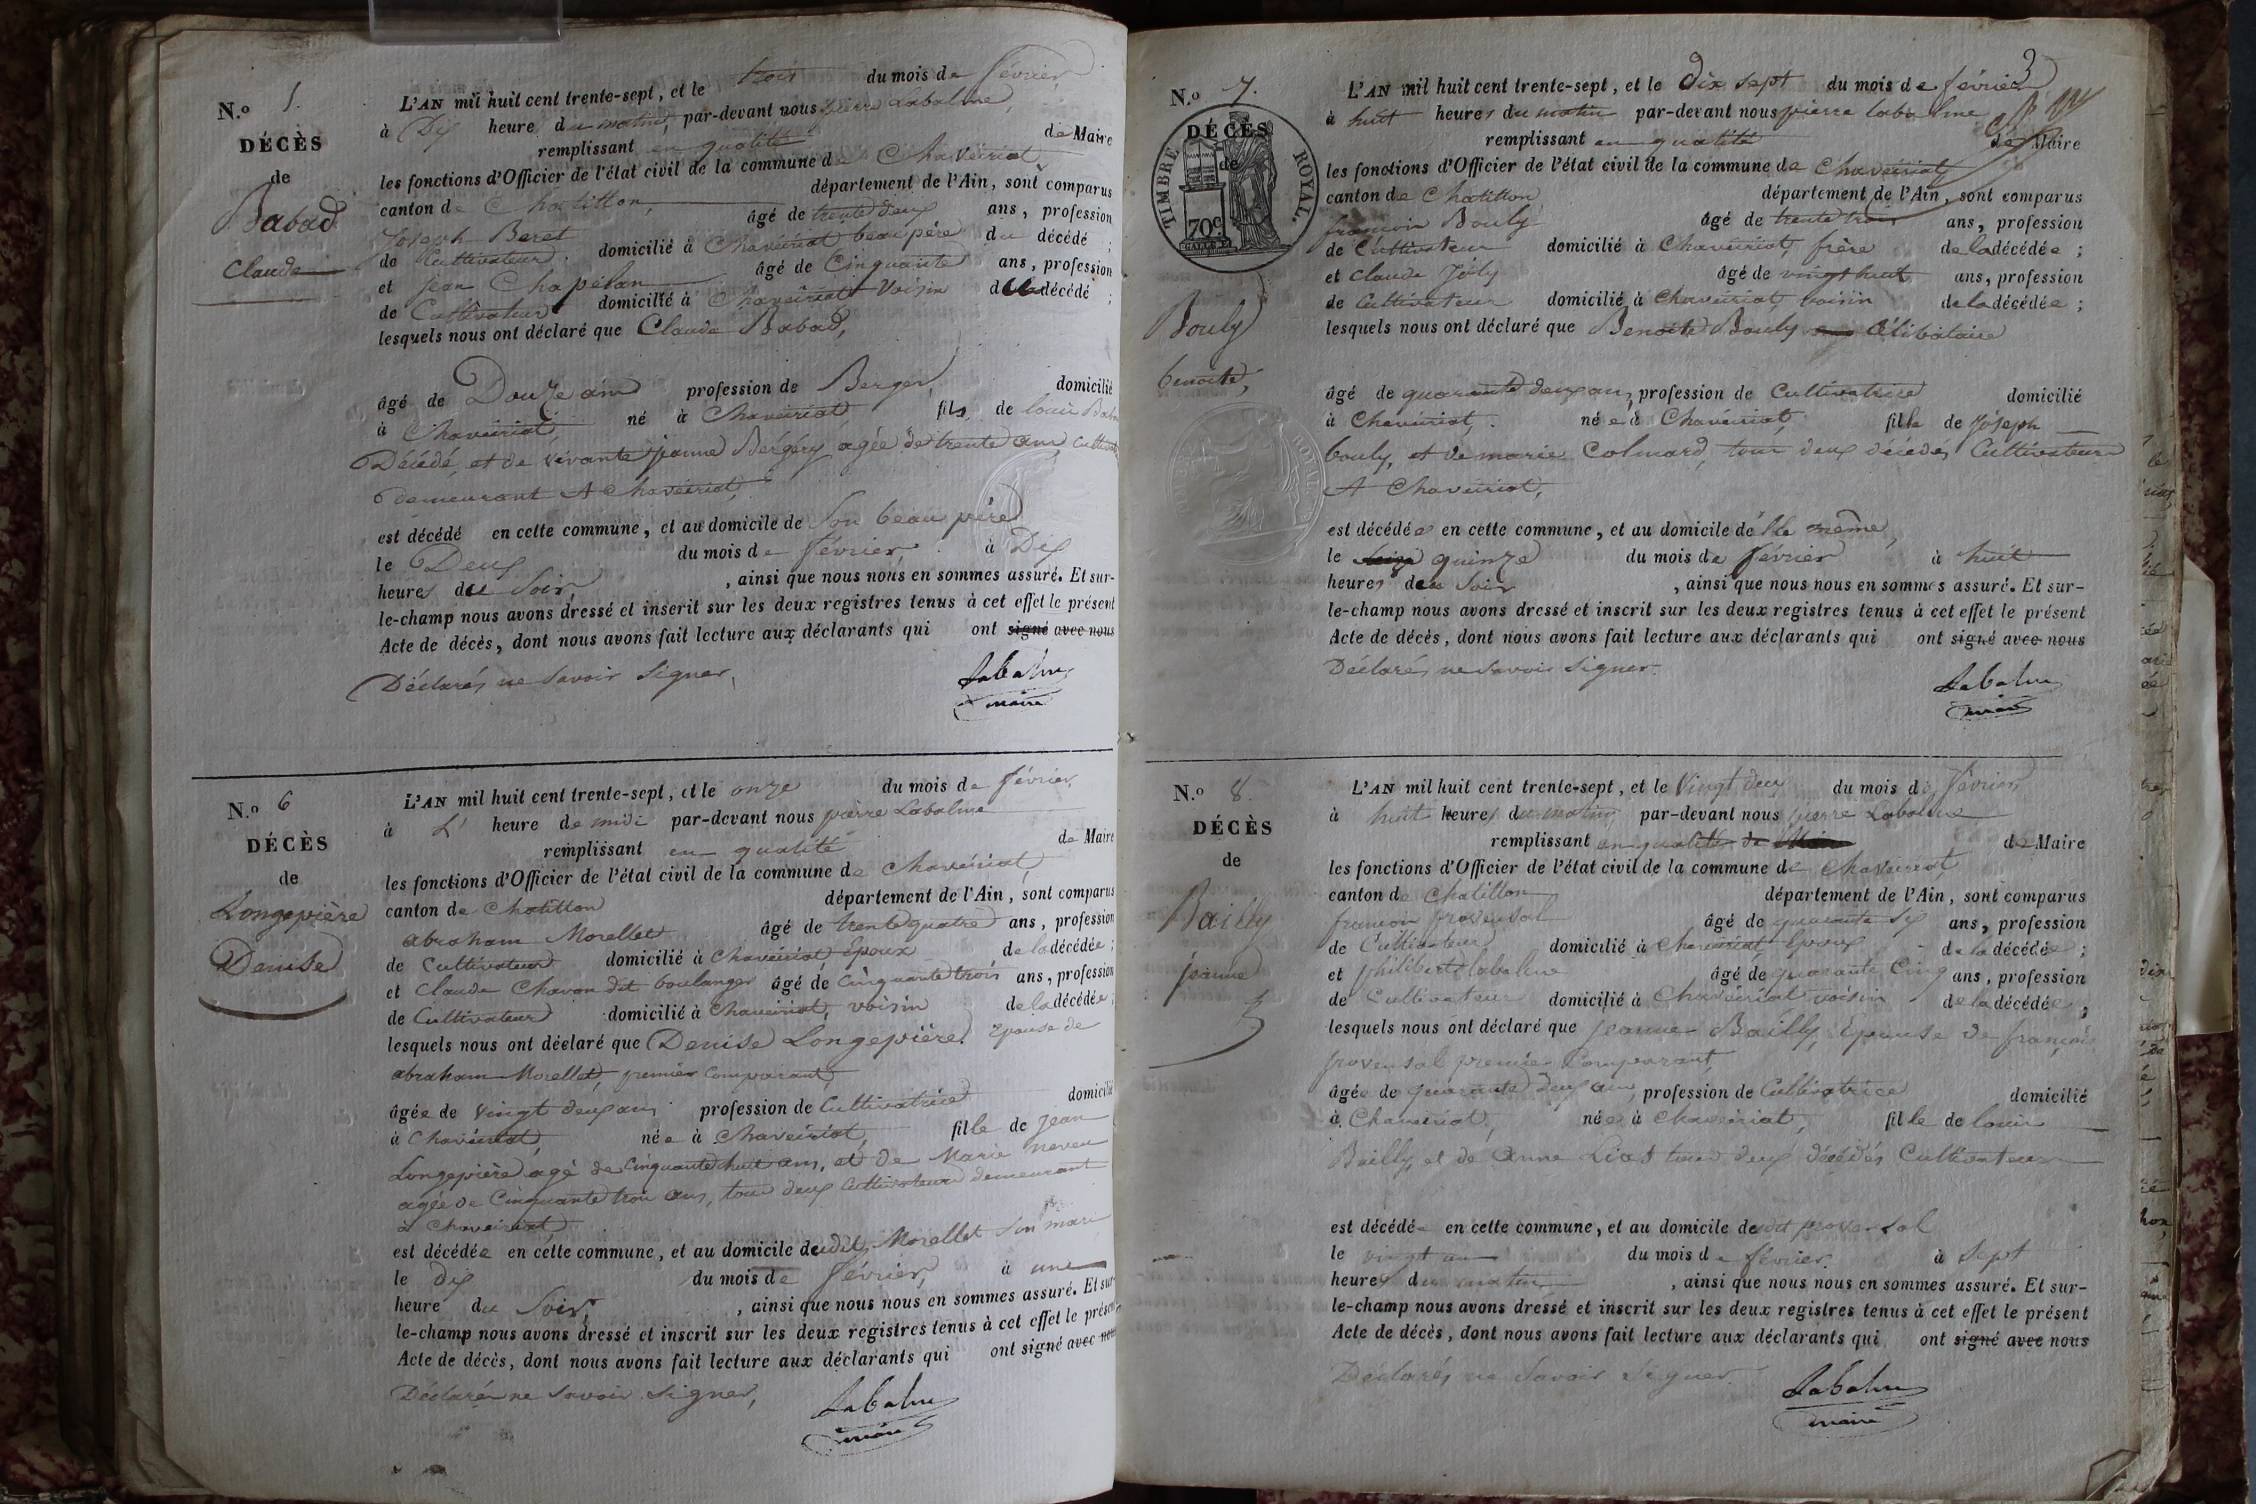 N.o 5.
DÉCÈS
de
Babad
Claude
L'AN mil huit cent trente-sept, et le trois du mois de février,
à Dix heure du matin, par-devant nous pierre Labalme,
remplissant en qualité de Maire
les fonctions d'Officier de l'état civil de la commune de Chaveiriat,
canton de Chatillon, département de l'Ain, sont comparus
Joseph Beret âgé de trente deux ans, profession
de Cultivateur. domicilié à Chaveiriat beau père du décédé ;
et jean Chapelan âgé de Cinquante ans, profession
de Cultivateur domicilié à Chaveiriat Voisin du décédé ;
lesquels nous ont déclaré que Claude Babad,
âgé de Douze ans profession de Berger, domicilié
à Chaveiriat, né à Chaveiriat, fils de louis Babad
Décédé, et de vivante jeanne Bergery, agée de trente ans,
demeurant A Chaveiriat,
est décédé en cette commune, et au domicile de Son beau père
le Deux du mois de février, à Dix
heures du Soir, , ainsi que nous nous en sommes assuré. Et sur-
le-champ nous avons dressé et inscrit sur les deux registres tenus à cet effet le présent
Acte de décès, dont nous avons fait lecture aux déclarants qui ont signé avec nous
Déclarés ne Savoir Signer,
Labalme
maire
N.o 6
DÉCÈS
de
Longepière
Denise
L'AN mil huit cent trente-sept, et le onze du mois de février,
à L' heure de midi par-devant nous pierre Labalme
remplissant en qualité de Maire
les fonctions d'Officier de l'état civil de la commune de Chaveiriat,
canton de Chatillon département de l'Ain, sont comparus
abraham Morellet âgé de trente quatre ans, profession
de Cultivateur domicilié à Chaveiriat Epoux de la décédée ;
et Claude Chavon dit boulanger âgé de Cinquante trois ans, profession
de Cultivateur domicilié à Chaveiriat, voisin de la décédée ;
lesquels nous ont déclaré que Denise Longepière Epouse de
abraham Morellet, premier Comparant,
âgée de vingt deux ans profession de Cultivatrice domicilié
à Chaveiriat, née à Chaveiriat, fille de jean
Longepière agé de Cinquante huit ans, et de Marie neveu
agée de Cinquante trois ans, tous deux Cultivateurs demeurant
à Chaveiriat,
est décédée en cette commune, et au domicile dudit Morellet Son mari
le dix du mois de février, à une
heure du Soir, , ainsi que nous nous en sommes assuré. Et sur-
le-champ nous avons dressé et inscrit sur les deux registres tenus à cet effet le présent
Acte de décès, dont nous avons fait lecture aux déclarants qui ont signé avec nous
Déclarés ne Savoir Signer,
Labalme
maire
3
N.o 7.
DÉCÈS
de
TIMBRE ROYAL.
70c
Bouly
benoite,
L'AN mil huit cent trente-sept, et le Dix Sept du mois de février
à huit heures du matin par-devant nous pierre labalme
remplissant en qualité de Maire
les fonctions d'Officier de l'état civil de la commune de Chaveiriat,
canton de Chatillon département de l'Ain, sont comparus
françois Bouly âgé de trente trois ans, profession
de Cultivateur domicilié à Chaveiriat, frère de la décédée ;
et Claude Joly âgé de vingt huit ans, profession
de Cultivateur domicilié à Chaveiriat, voisin de la décédée ;
lesquels nous ont déclaré que Benoite Bouly Célibataire
âgé de quarante deux ans, profession de Cultivatrice domicilié
à Chaveiriat, née à Chaveiriat, fille de Joseph
bouly, et de marie Colmard, tous deux décédés Cultivateurs
A Chaveiriat,
est décédée en cette commune, et au domicile d'elle même,
le quinze du mois de février à huit
heures du Soir , ainsi que nous nous en sommes assuré. Et sur-
le-champ nous avons dressé et inscrit sur les deux registres tenus à cet effet le présent
Acte de décès, dont nous avons fait lecture aux déclarants qui ont signé avec nous
Déclarés ne Savoir Signer.
Labalme
maire
N.o 8.
DÉCÈS
de
Bailly
jeanne
L'AN mil huit cent trente-sept, et le Vingt deux du mois de février
à huit heures du matin, par-devant nous pierre Labalme
remplissant en qualité de de Maire
les fonctions d'Officier de l'état civil de la commune de Chaveiriat,
canton de Chatillon département de l'Ain, sont comparus
françois provensal âgé de quarante Six ans, profession
de Cultivateur domicilié à Chaveiriat Epoux de la décédée ;
et philibert labalme âgé de quarante Cinq ans, profession
de Cultivateur domicilié à Chaveiriat voisin de la décédée ;
lesquels nous ont déclaré que jeanne Bailly Epouse de françois
provensal premier Comparant,
âgée de quarante deux ans, profession de Cultivatrice domicilié
à Chaveiriat, née à Chaveiriat, fille de louis
Bailly, et de Anne tous deux décédés Cultivateurs
est décédée en cette commune, et au domicile dudit provensal
le vingt un du mois de février. à Sept
heures du matin , ainsi que nous nous en sommes assuré. Et sur-
le-champ nous avons dressé et inscrit sur les deux registres tenus à cet effet le présent
Acte de décès, dont nous avons fait lecture aux déclarants qui ont signé avec nous
Déclarés ne Savoir Signer.
Labalme
maire